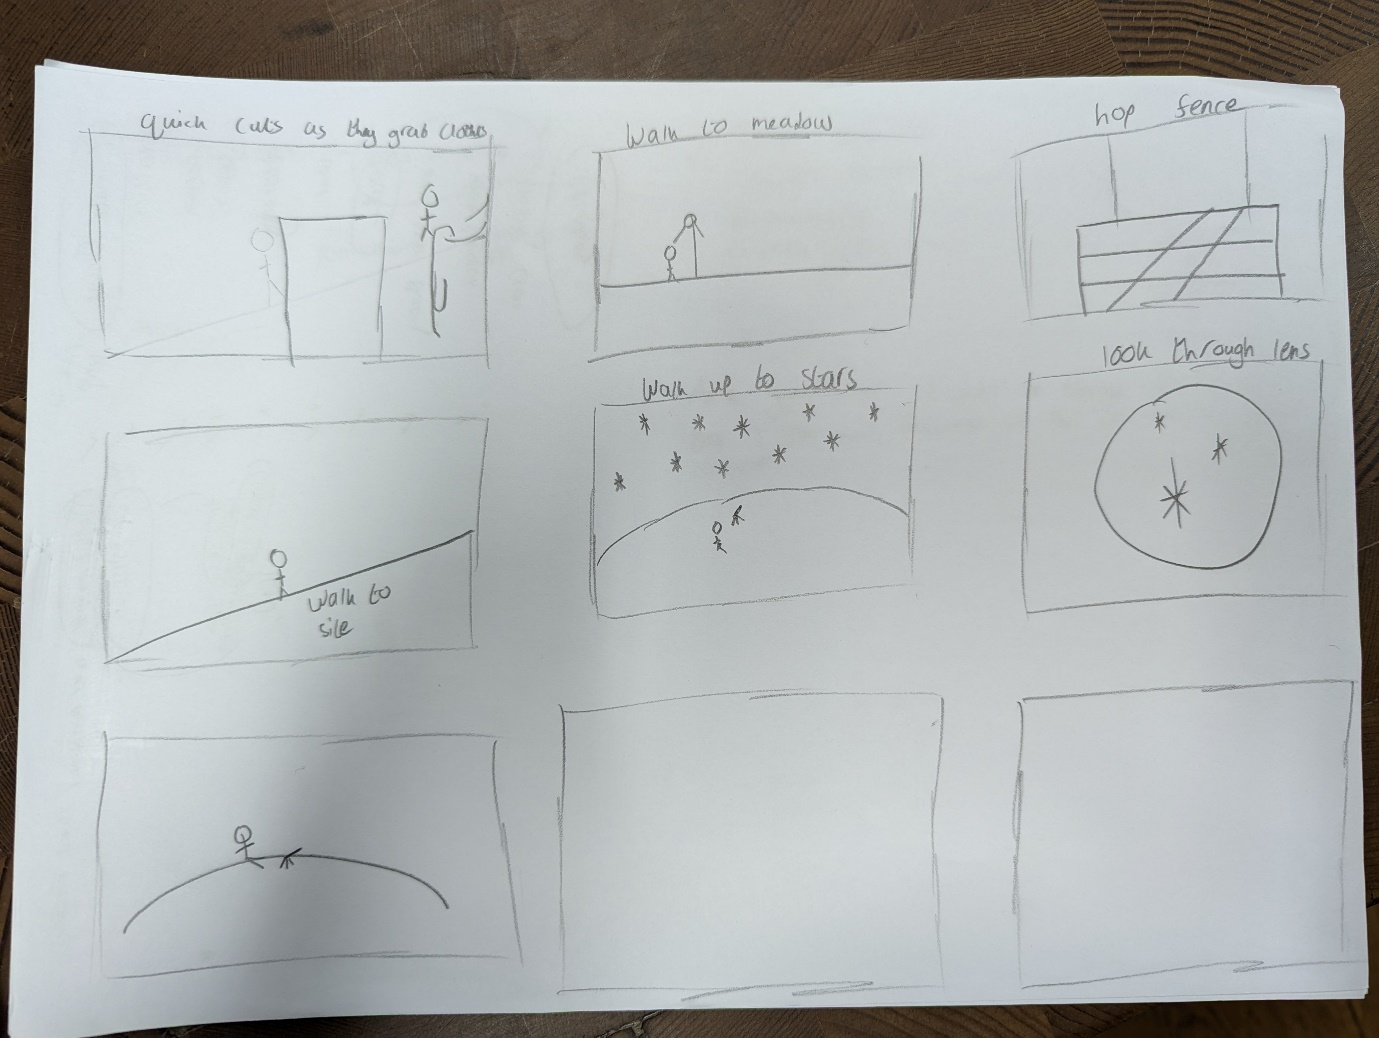 quick cuts as they grab clothes
Walk to meadow
hop fence
Walk to
site
Walk up to stars
look through lens